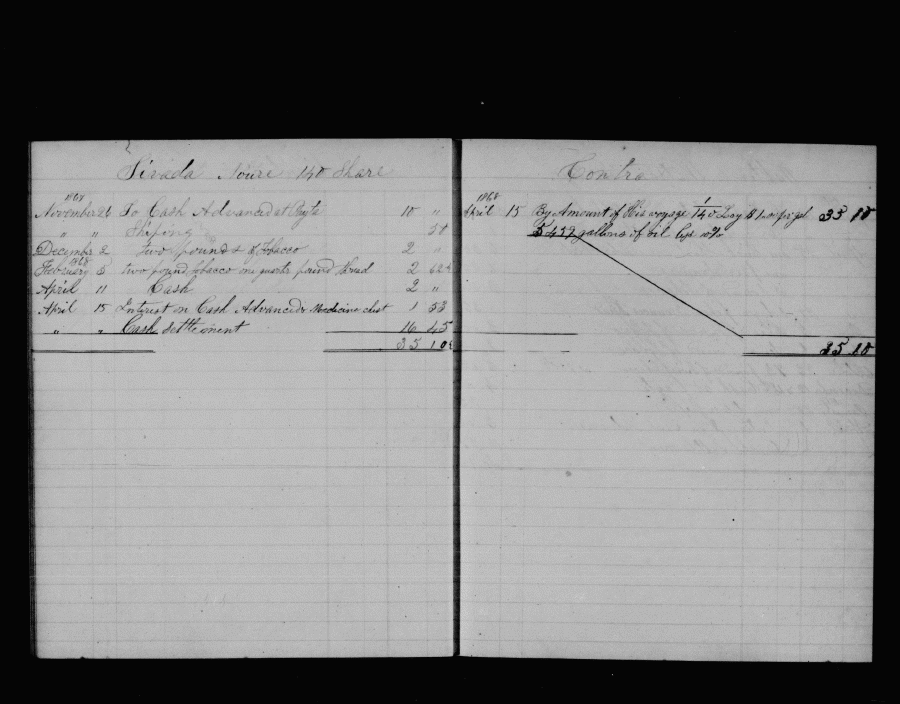 Sirada Noure 140 Share
1868
November 26 To Cash Advanced at Payta 10 "
" " Shiping 50
December 2 Two pounds of Tobacco 2 "
1868
February 5 two pound tobacco one quarter pound thread 2 62½
April 11 Cash 2 "
April 15 Interest on Cash Advanced & Medicine chest 1 53
" " Cash settlement 16 45
35 10
Contra
1868
April 15 By Amount of His voyage 1/140 Lay $ 1 pr gal 35 10
5459 gallons of oil
35 10